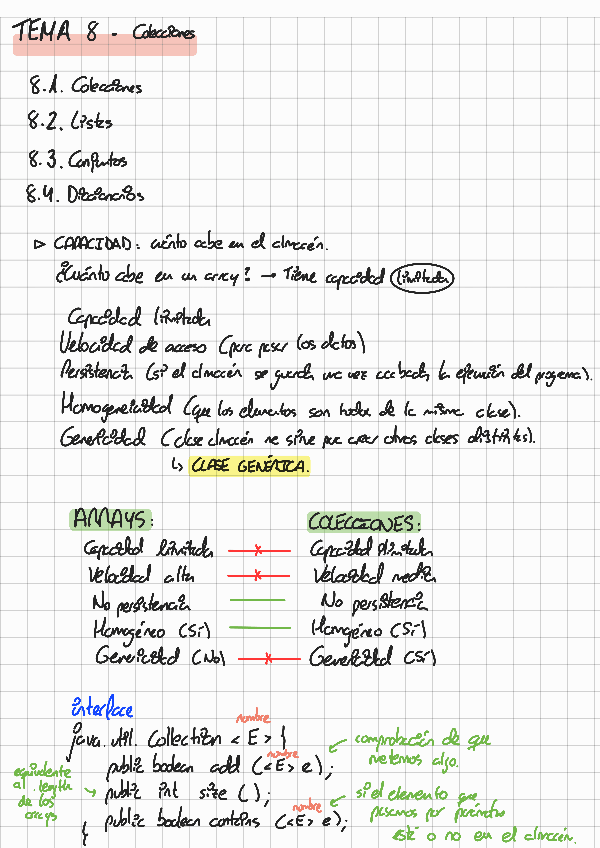 TEMA 8 - Colecciones
8.1. Colecciones
8.2. Listas
8.3. Conjuntos
8.4. Diccionarios
▷ CAPACIDAD: cuánto cabe en el almacén.
¿Cuánto cabe en un array? → Tiene capacidad limitada
Capacidad limitada
Velocidad de acceso (para pasar los datos)
Persistencia (si el almacén se guarda una vez acabada la ejecución del programa).
Homogeneidad (que los elementos son todos de la misma clase).
Genericidad (clase almacén me sirve para crear otras clases distintas).
↳ CLASE GENÉRICA.
ARRAYS: COLECCIONES:
Capacidad limitada Capacidad ilimitada
Velocidad alta Velocidad media
No persistencia No persistencia
Homogéneo (Sí) Homogéneo (Sí)
Genericidad (No) Genericidad (Sí)
interface
nombre
java.util.Collection <E> {
nombre
public boolean add (<E> e); ← comprobación de que
metemos algo.
equivalente
al .length
de los
arrays
→ public int size ();
nombre
public boolean contains (<E> e); ← si el elemento que
pasamos por parámetro
está o no en el almacén.
{